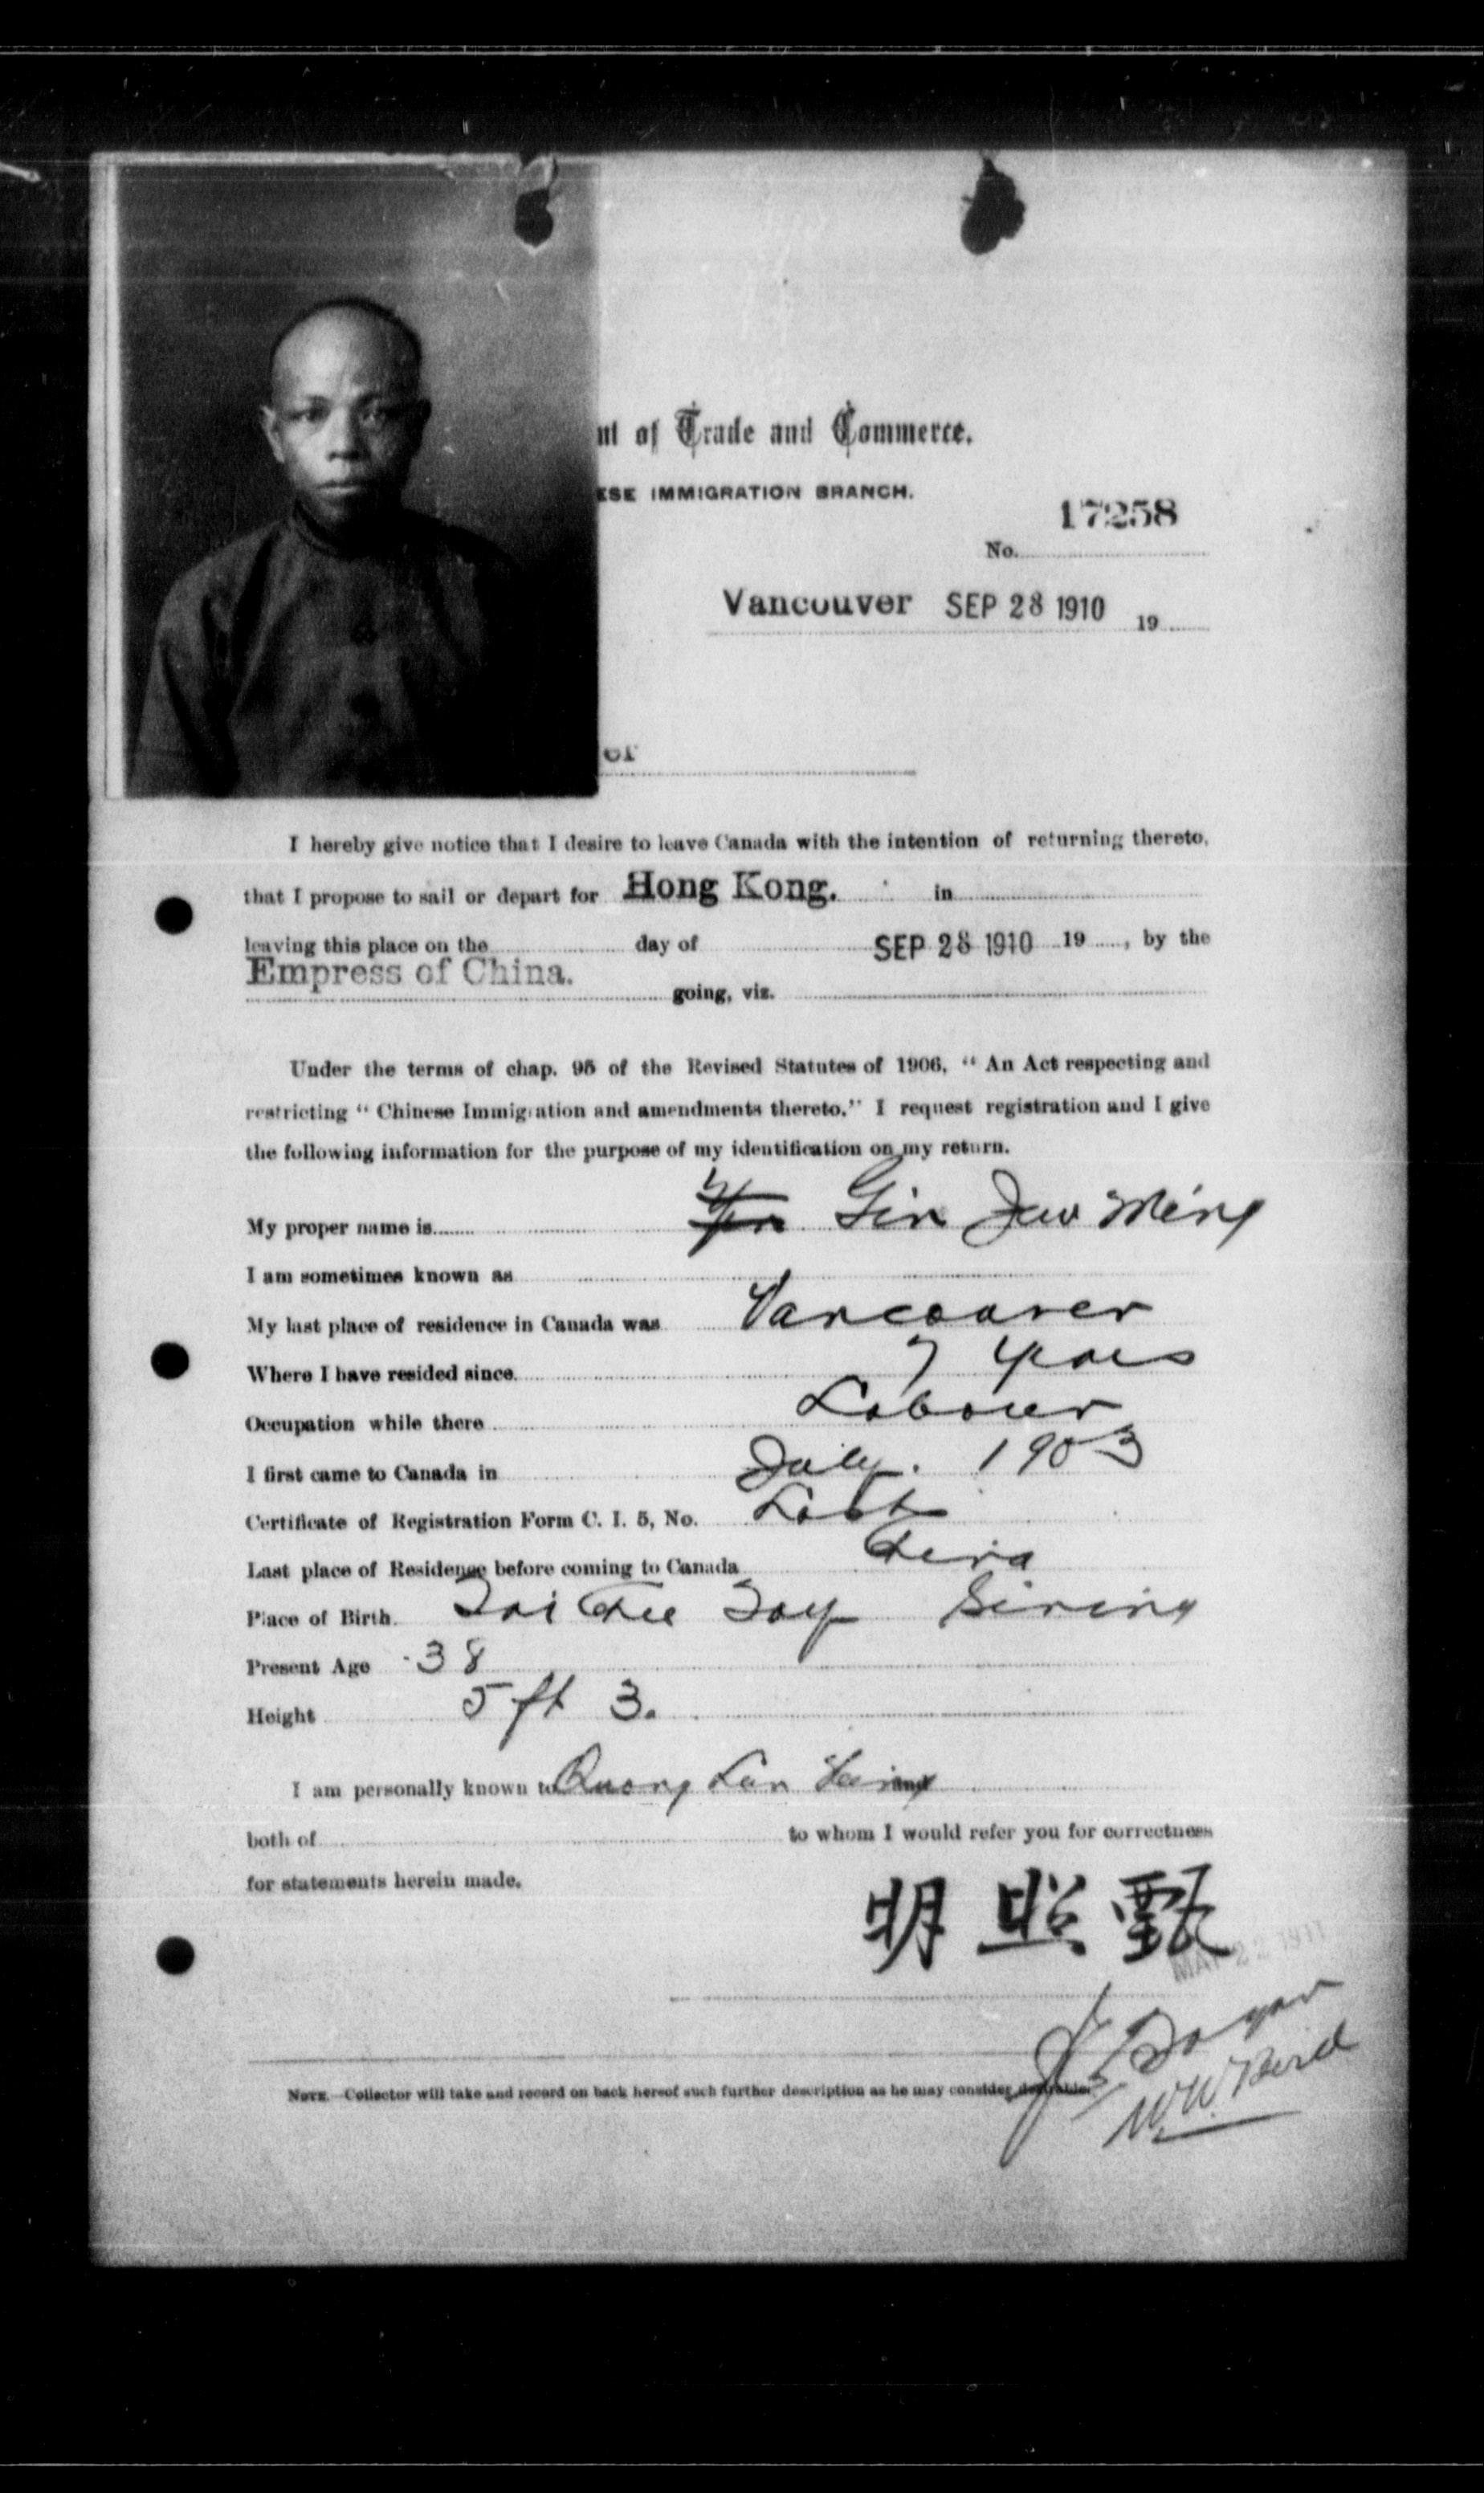 nt of Trade and Commerce.
ESE IMMIGRATION BRANCH.
17258
No.
Vancouver SEP 28 1910 19
er
I hereby give notice that I desire to leave Canada with the intention of returning thereto,
that I propose to sail or depart for Hong Kong. in
leaving this place on the day of SEP 28 1910 19 , by the
Empress of China. going, viz.
Under the terms of chap. 95 of the Revised Statutes of 1906, “ An Act respecting and
restricting “ Chinese Immigration and amendments thereto.” I request registration and I give
the following information for the purpose of my identification on my return.
My proper name is Gin Jew Ming
I am sometimes known as
My last place of residence in Canada was Vancouver
Where I have resided since 7 years
Occupation while there Labour
I first came to Canada in July. 1903
Certificate of Registration Form C. I. 5, No. Lost
Last place of Residence before coming to Canada China
Place of Birth. Soy Sining
Present Age 38
Height 5 ft 3.
I am personally known to Quong Lun and
both of to whom I would refer you for correctness
for statements herein made.
明 照 甄
MAR 22 1911
W W Bird
NOTE.—Collector will take and record on back hereof such further description as he may consider desirable.